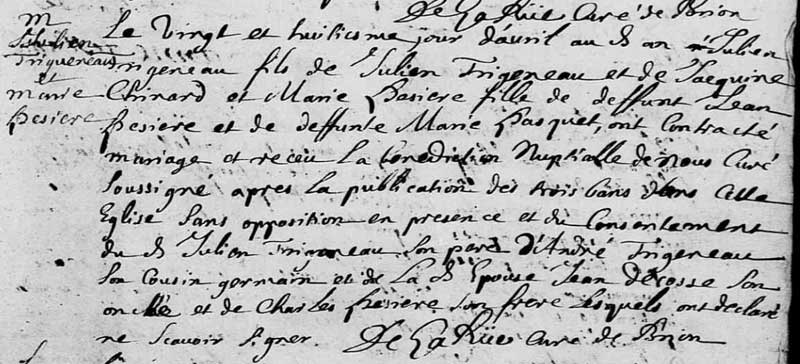 De La Rüe Curé de Brion
m
Julien
Trigueneau
et
marie
Besiere
Le vingt et huiliesme jour davril au d an Julien
Trigeneau fils de Julien Trigeneau et de Jacquine
Chinard et Marie Besiere fille de deffunt Jean
Besiere et de deffunte Marie Pasquet, ont Contracté
mariage et receu La benediction Nuptialle de nous Curé
Soussigné apres La publication des trois bans dans Cette
Eglise Sans opposition en presence et du Consentement
du d Julien Trigeneau Son pere d'André Trigeneau
Son Cousin germain et de La d Epouse Jean Son
oncle et de Charles Besiere Son frere Lesquels ont declaré
ne Scavoir Signer. De La Rüe Curé de Brion